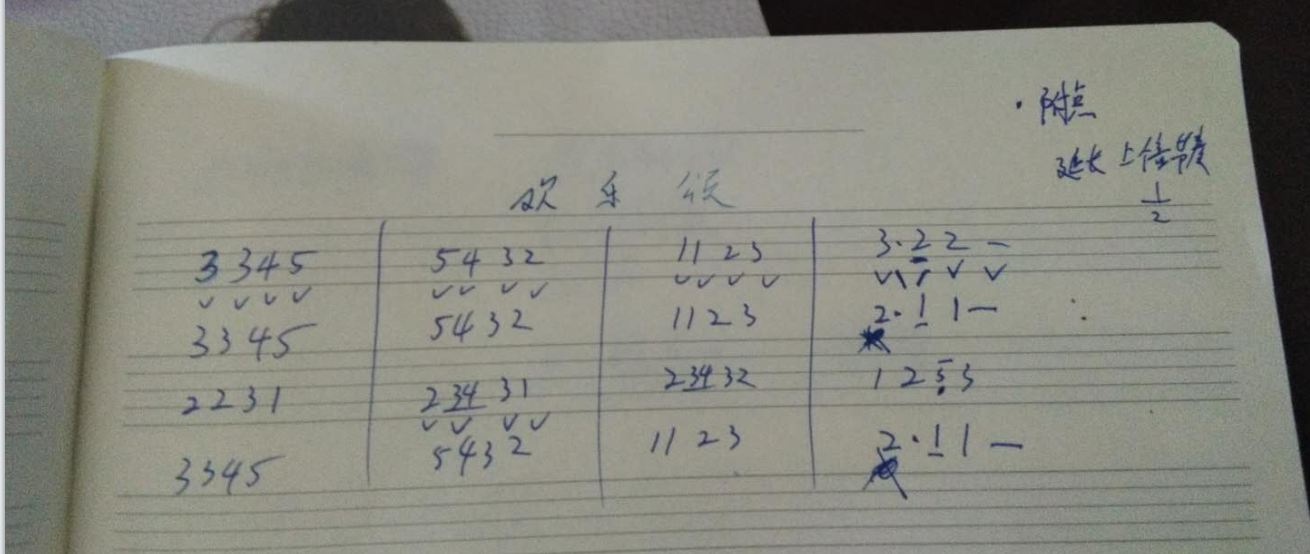 · 附点
延长上倍单度
1/2
欢乐颂
3 3 4 5 | 5 4 3 2 | 1 1 2 3 | 3 · 2 2 —
3 3 4 5 | 5 4 3 2 | 1 1 2 3 | 2 · 1 1 —
2 2 3 1 | 2 34 3 1 | 2 34 3 2 | 1 2 5 3
3 3 4 5 | 5 4 3 2 | 1 1 2 3 | 2 · 1 1 —